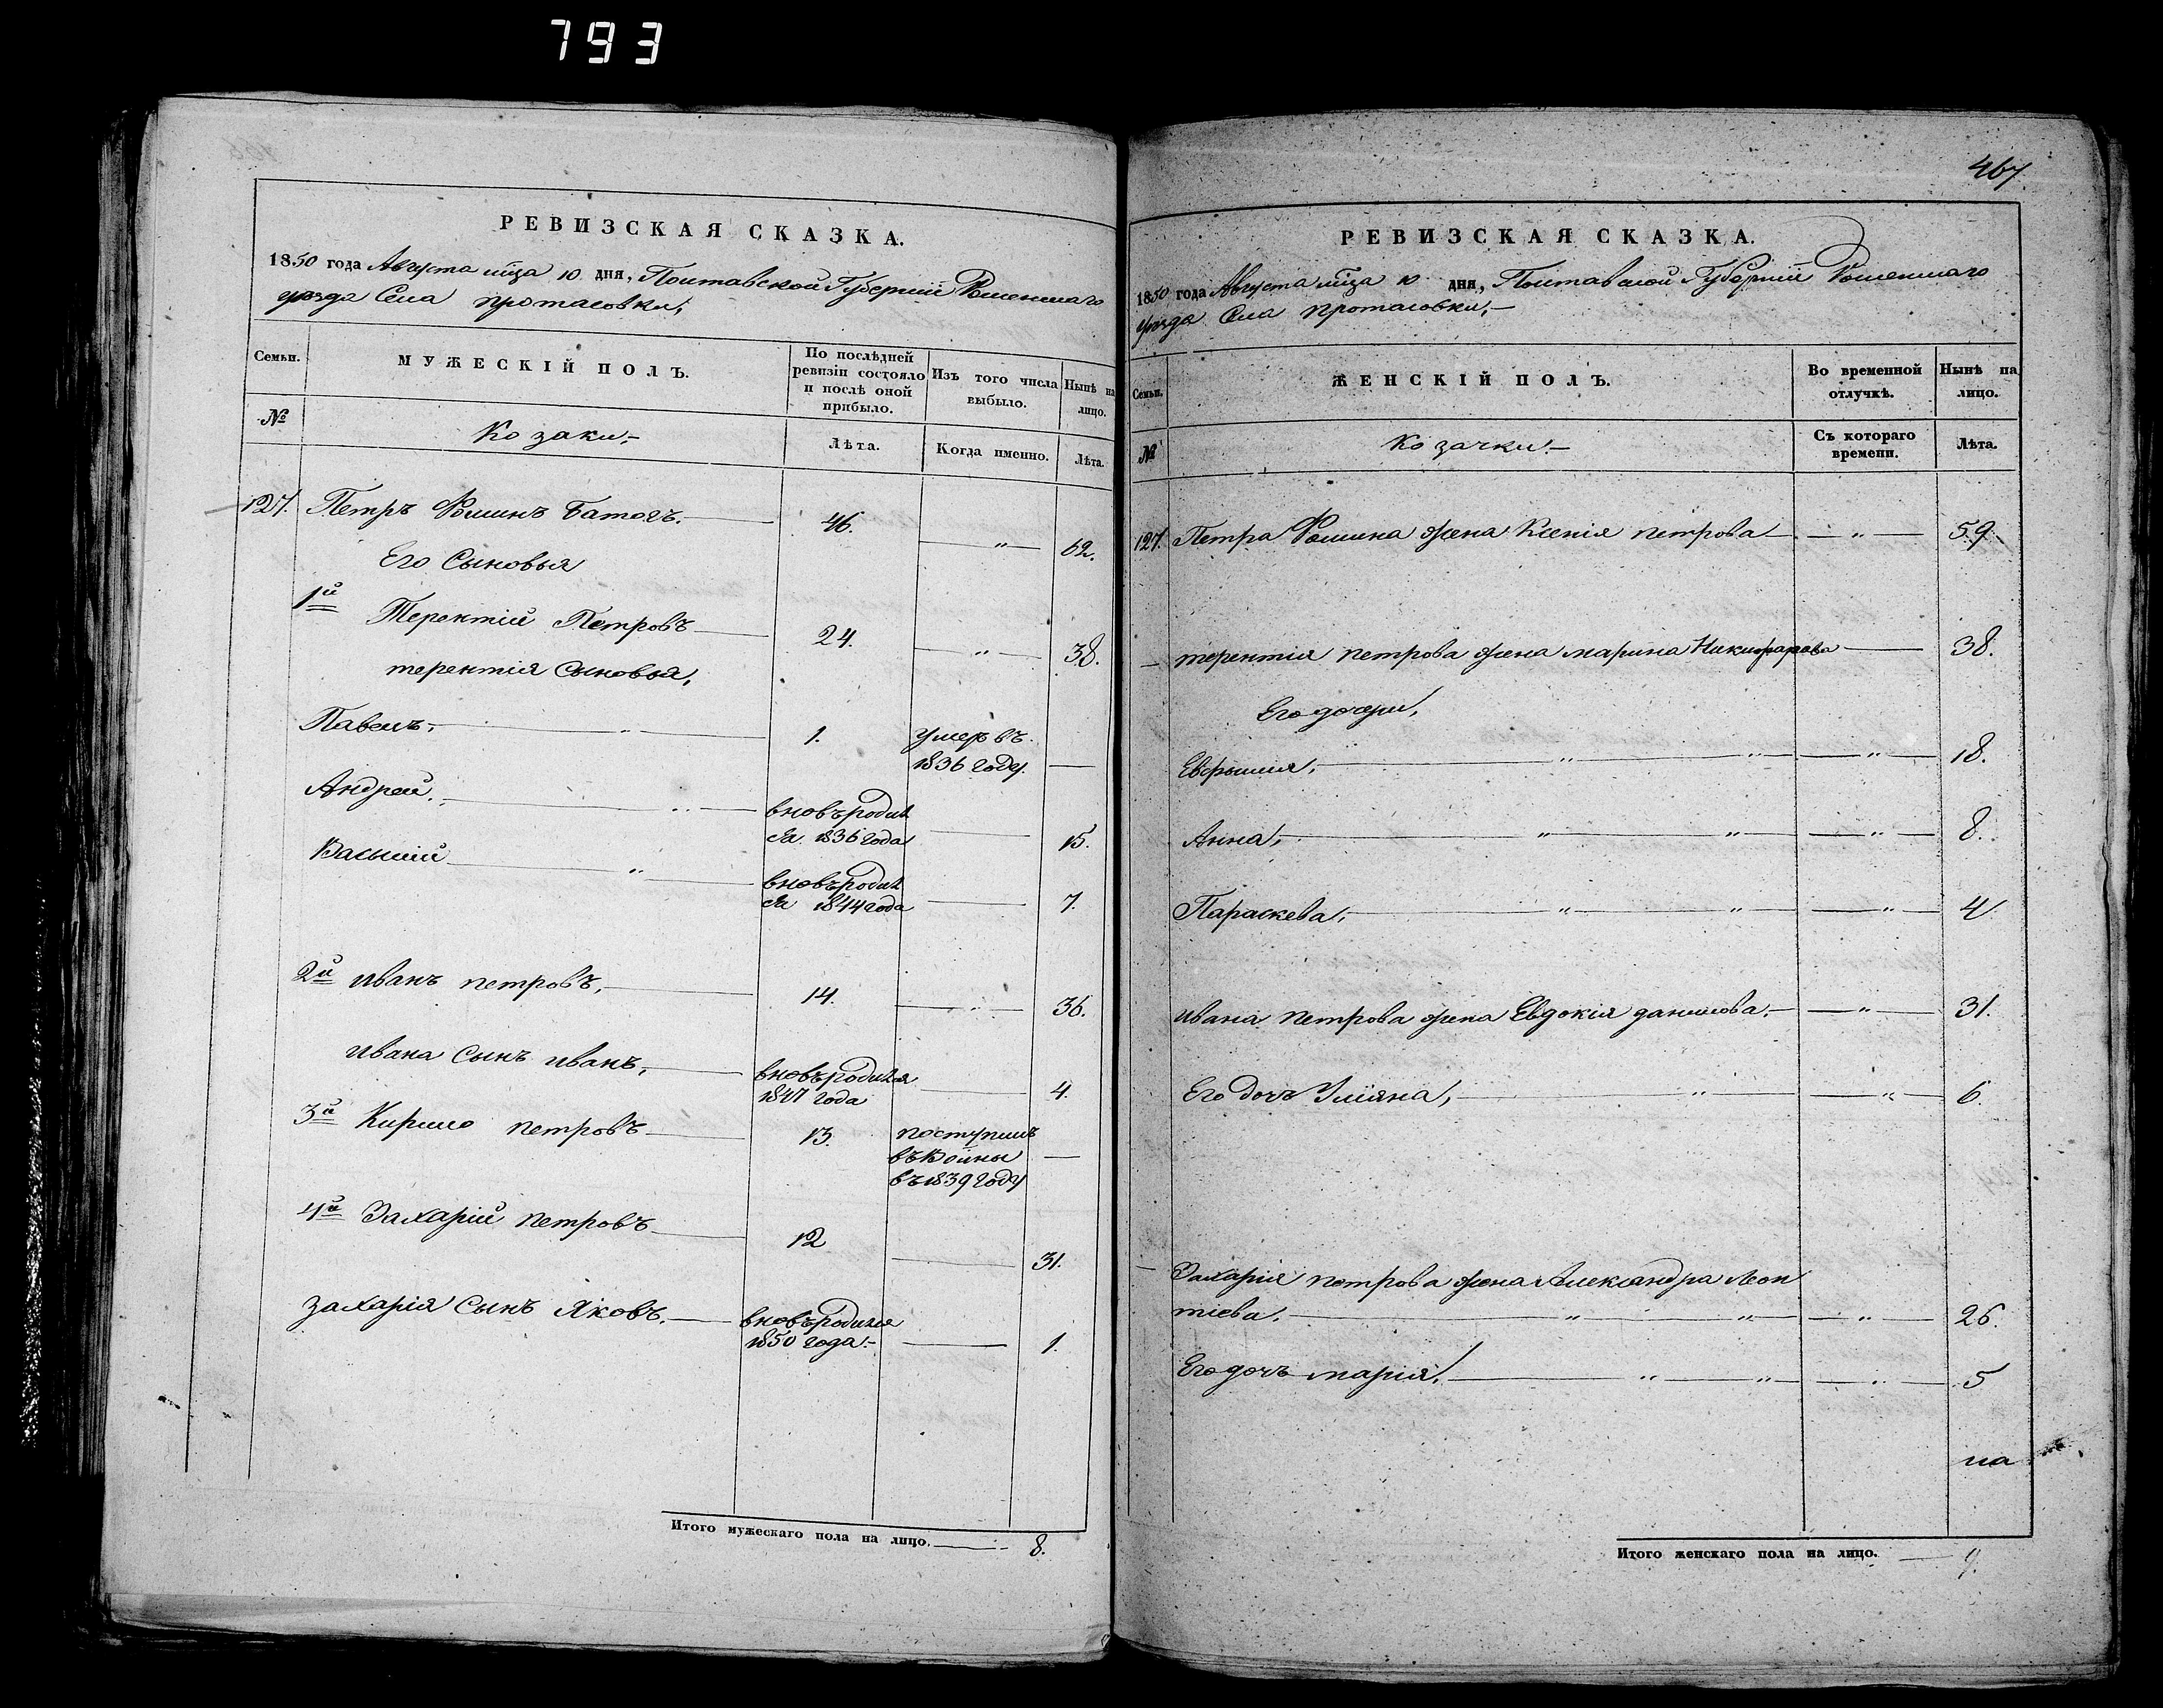 793
РЕВИЗСКАЯ СКАЗКА.
1850 года Августа мца 10 дня, Полтавской Губерніи Роменскаго
уезда Села протасовки,
Семьи.
МУЖЕСКІЙ ПОЛЪ.
По послѣдней ревизіи состояло и послѣ оной прибыло.
Изъ того числа выбыло.
Нынѣ на лицо.
№
Козаки,-
Лѣта.
Когда именно.
Лѣта.
127. Петръ Фоминъ Батогъ. 46. " 62.
Его Сыновья
1й Терентій Петровъ 24. " 38.
терентія Сыновья,
Павелъ, " 1. умеръ въ
1836 году.
Андрей. " вновь родил
ся 1836 года 15.
Василий " вновь родил
ся 1844 года 7.
2й иванъ петровъ, 14. " 36.
ивана Сынъ иванъ, вновь родился
1847 года 4.
3й Кирило петровъ 13. поступилъ
въ
въ 1839 году
4й Захарій петровъ 12 31.
захарія Сынъ Яковъ. вновь родился
1850 года.- 1.
Итого мужескаго пола на лицо. 8.
467.
РЕВИЗСКАЯ СКАЗКА.
1850 года Августа мца 10 дня, Полтавской Губерніи Роменскаго
уезда Села протасовки,-
Семьи.
ЖЕНСКІЙ ПОЛЪ.
Во временной отлучкѣ.
Нынѣ на лицо.
№
Козачки.-
Съ котораго времени.
Лѣта.
127. Петра Фомина жена Ксенія петрова " 59.
терентія петрова жена марина Никифарова 38.
Его дочери,
Евфимия, " " " 18.
Анна, " " " 8.
Параскева, " " " 4
ивана петрова жена Евдокія данилова. " 31.
Его дочь Уліяна, " " 6.
Захарія петрова жена Александра Леон
тіева. " " " 26.
Его дочь марія, " " " 5
на
Итого женскаго пола на лицо. 9.